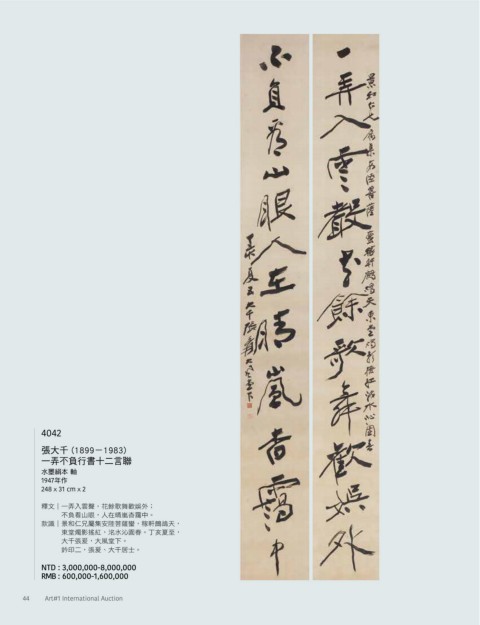 一弄入雲聲花餘歌舞歡娛外
景和仁兄屬集安陸菩薩蠻稼軒鷓鴣天東堂燭影搖紅洺水沁園春
不負看山眼人在晴嵐杳靄中
丁亥夏至大千張爰大風堂下
4042
張大千（1899－1983）
一弄不負行書十二言聯
水墨絹本 軸
1947年作
248 x 31 cm x 2
釋文｜一弄入雲聲，花餘歌舞歡娛外；
不負看山眼，人在晴嵐杳靄中。
款識｜景和仁兄屬集安陸菩薩蠻、稼軒鷓鴣天，
東堂燭影搖紅，洺水沁園春。丁亥夏至，
大千張爰，大風堂下。
鈐印二，張爰、大千居士。
NTD : 3,000,000-8,000,000
RMB : 600,000-1,600,000
44 Art#1 International Auction